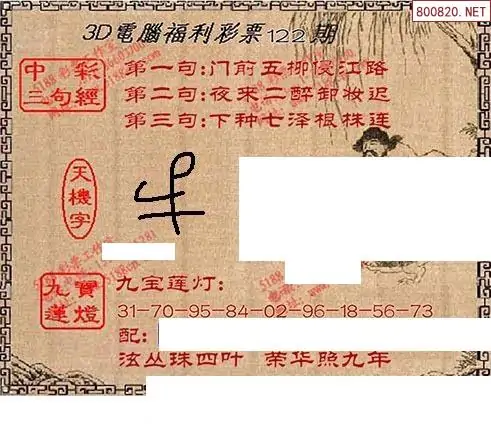 800820.NET
3D電腦福利彩票122期
中彩三句經
第一句:门前五柳侵江路
第二句:夜来二醉卸妆迟
第三句:下种七泽根株连
天機字
九寶蓮燈
九宝莲灯:
31-70-95-84-02-96-18-56-73
配:
泫丛珠四叶 荣华照九年